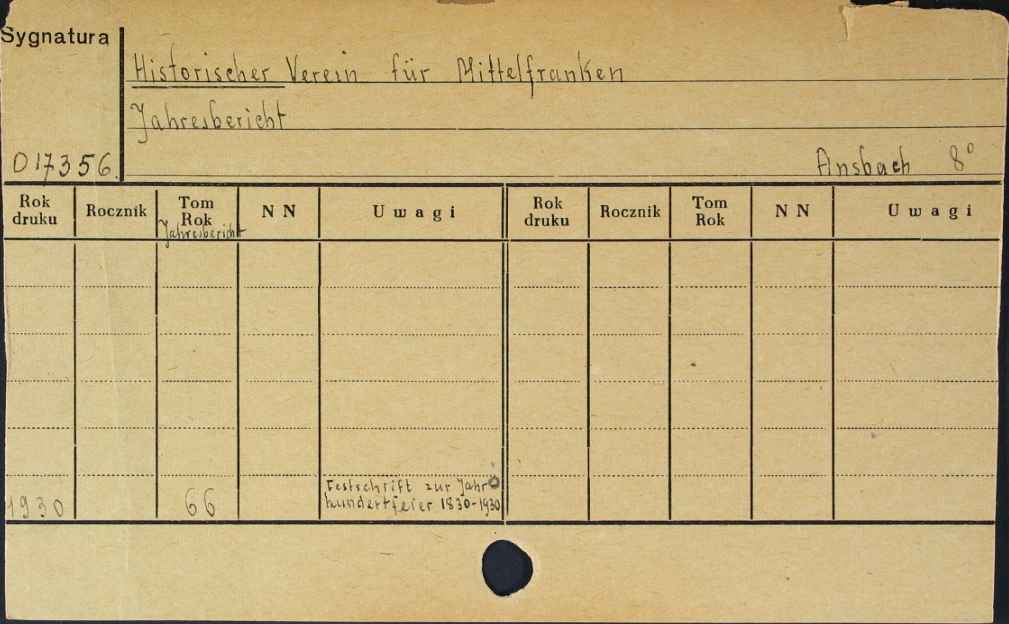 Sygnatura
Historischer Verein für Mittelfranken
Jahresbericht
D 17356. Ansbach 8°
Rok druku Rocznik Tom Rok Jahresbericht N N Uwagi Rok druku Rocznik Tom Rok N N Uwagi
1930 66 Festschrift zur Jahr
hundertfeier 1830-1930